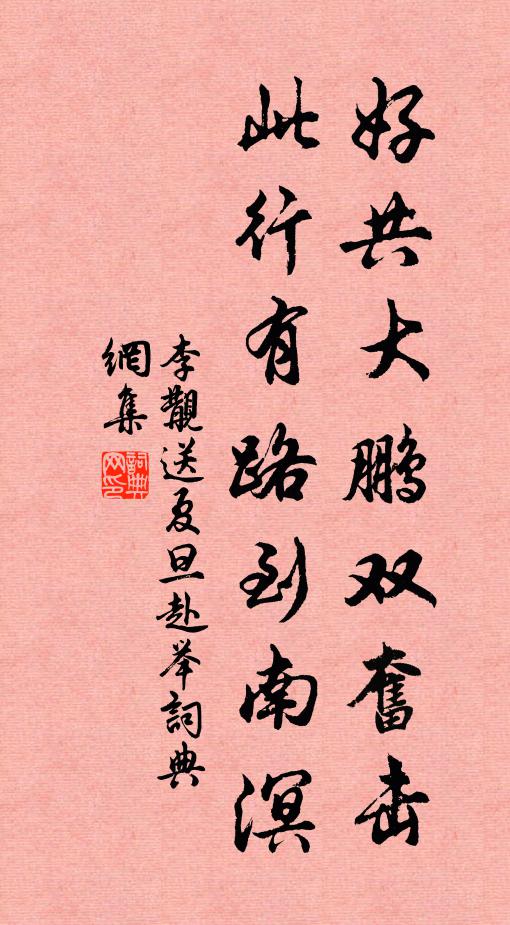 好共大鹏双奋击
此行有路到南溟
李覯送夏旦赴举詞典
網集
詞典网印